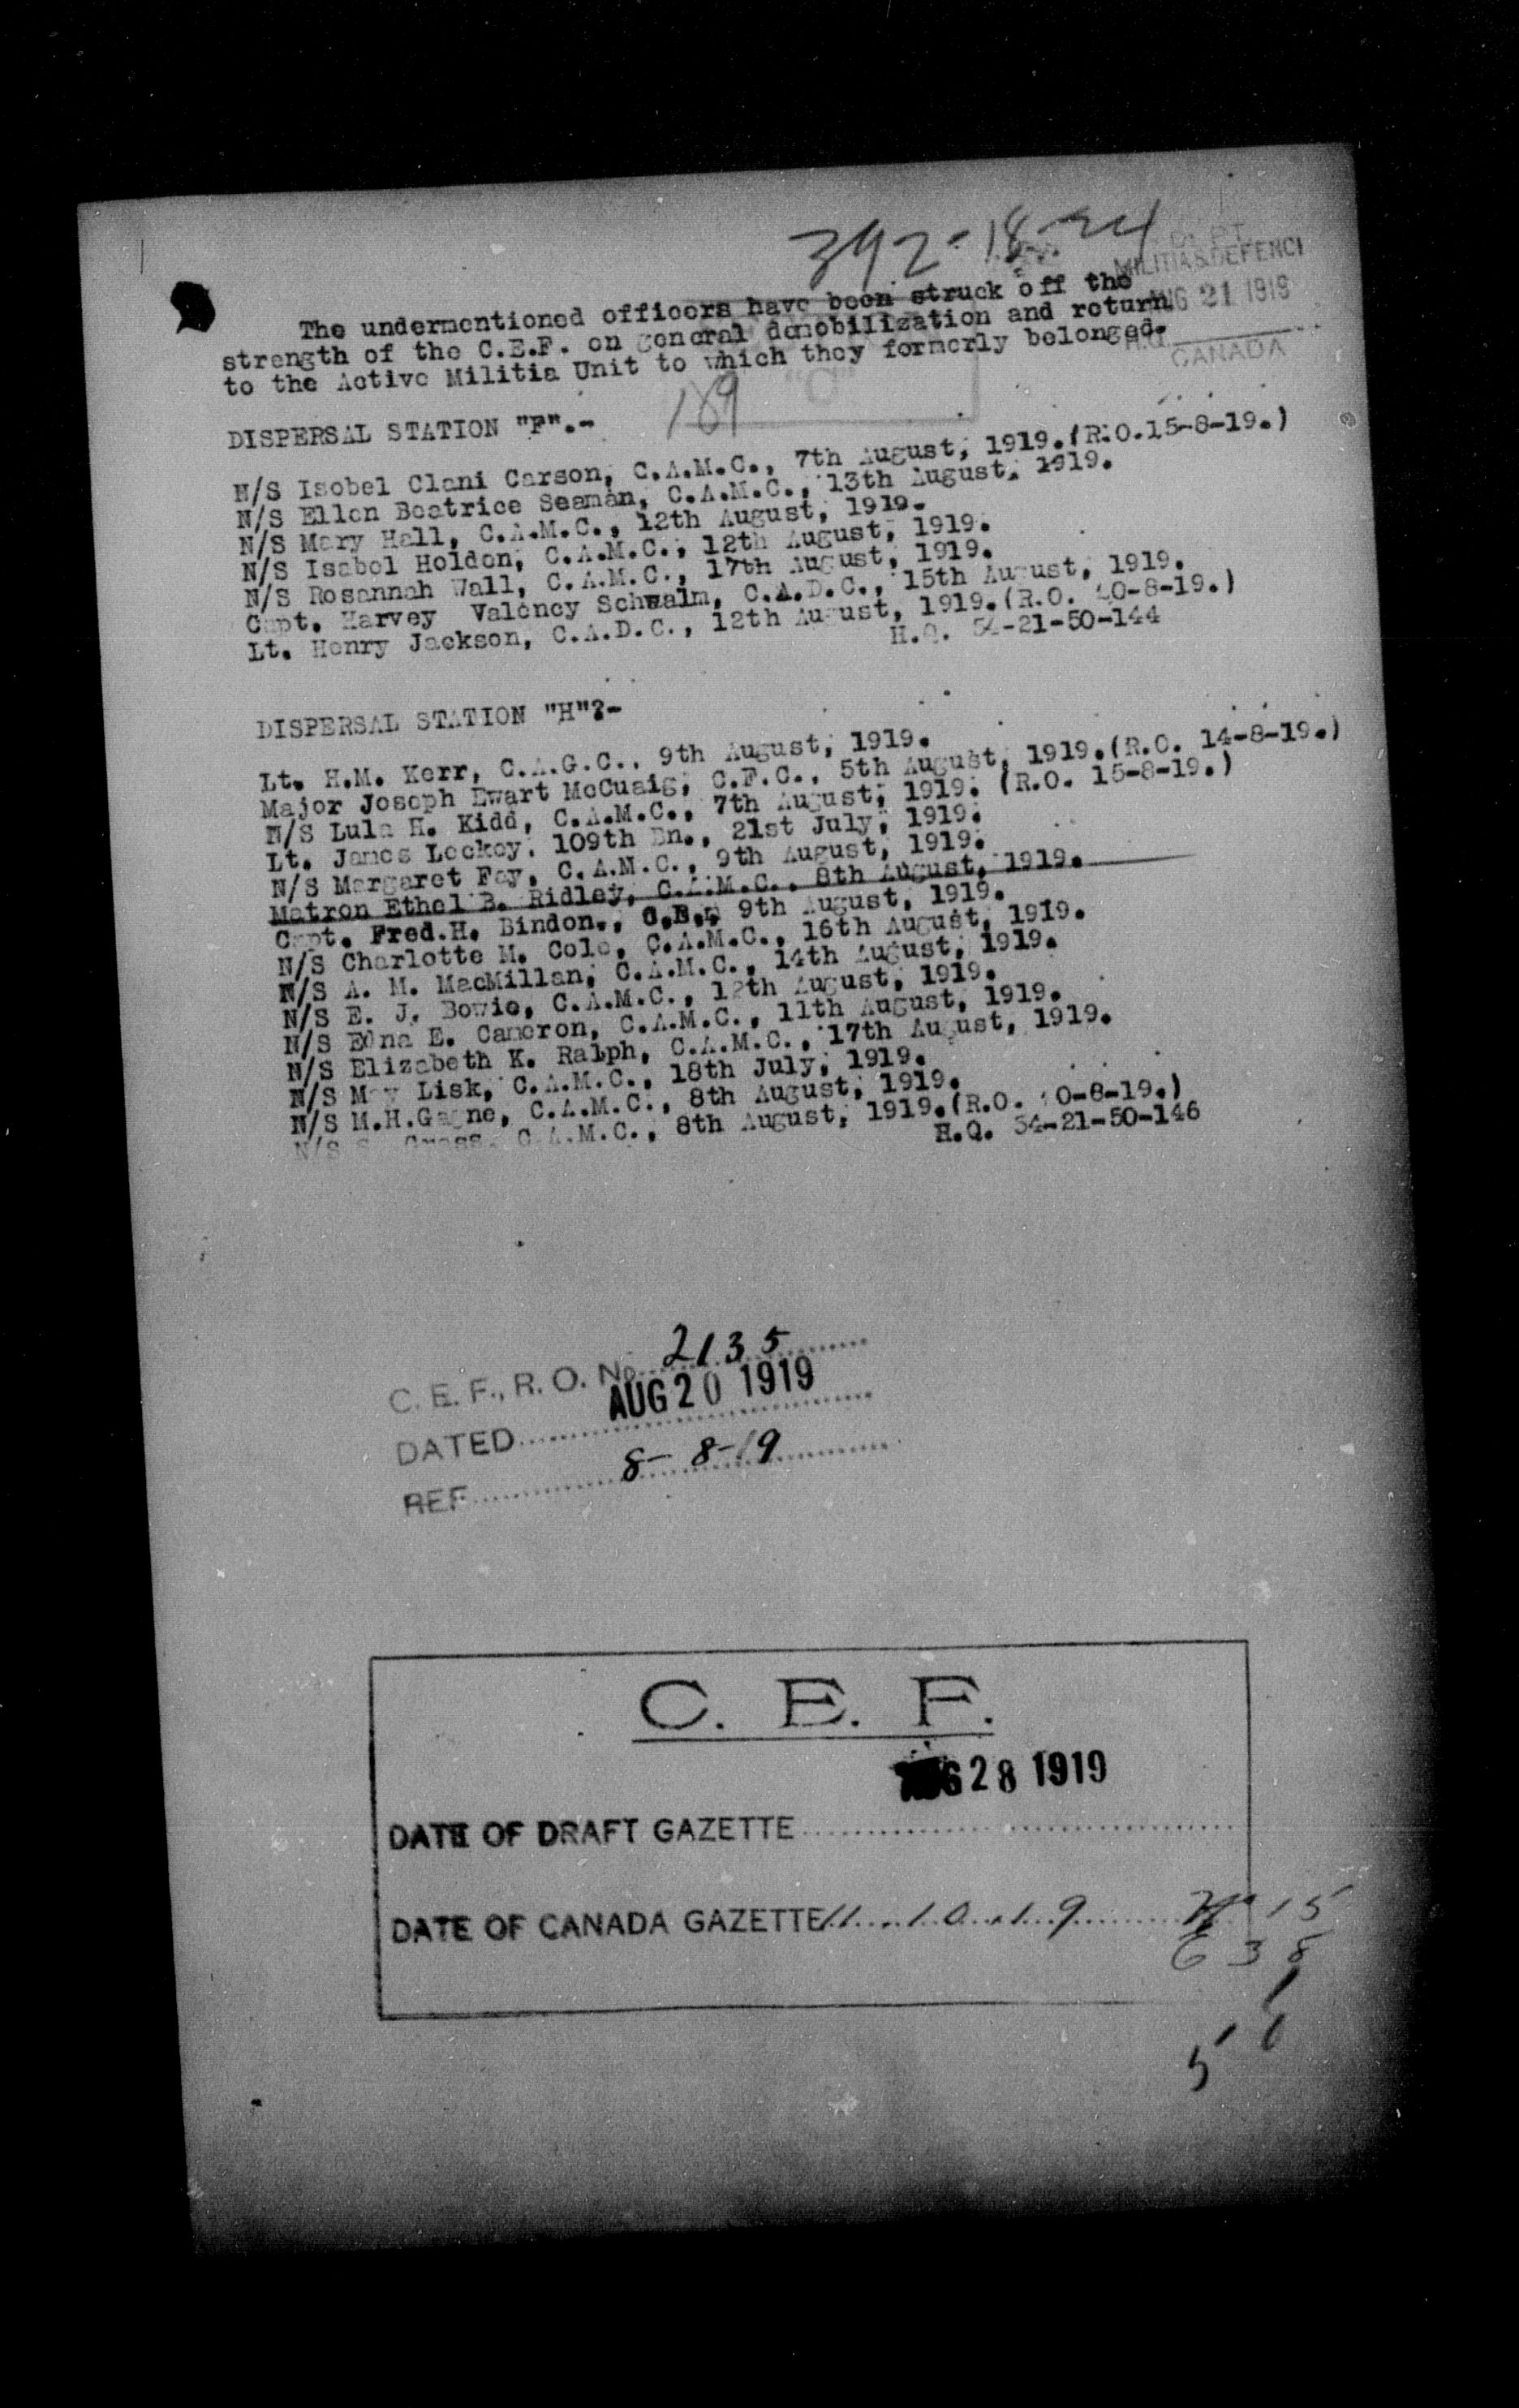 392-18-24
DEPT.
MILITIA & DEFENCE
AUG 21 1919
H.Q.
CANADA
The undermentioned officers have been struck off the
strength of the C.E.F. on general demobilization and return
to the Active Militia Unit to which they formerly belonged.
189
"C"
DISPERSAL STATION "F".-
N/S Isobel Clani Carson, C.A.M.C., 7th August, 1919.(R.O.15-8-19.)
N/S Ellen Beatrice Seaman, C.A.M.C., 13th August, 1919.
N/S Mary Hall, C.A.M.C., 12th August, 1919.
N/S Isabel Holden, C.A.M.C., 12th August, 1919.
N/S Rosannah Wall, C.A.M.C., 17th August, 1919.
Capt. Harvey Valency Schwalm, C.A.D.C., 15th August, 1919.
Lt. Henry Jackson, C.A.D.C., 12th August, 1919.(R.O. 20-8-19.)
H.Q. 54-21-50-144
DISPERSAL STATION "H"?-
Lt. H.M. Kerr, C.A.G.C., 9th August, 1919.
Major Joseph Ewart McCuaig, C.F.C., 5th August, 1919.(R.O. 14-8-19.)
N/S Lula H. Kidd, C.A.M.C., 7th August, 1919. (R.O. 15-8-19.)
Lt. James Lockey, 109th Bn., 21st July, 1919.
N/S Margaret Fay, C.A.M.C., 9th August, 1919.
Matron Ethel B. Ridley, C.A.M.C., 8th August, 1919.
Capt. Fred.H. Bindon., C.E., 9th August, 1919.
N/S Charlotte M. Cole, C.A.M.C., 16th August, 1919.
N/S A. M. MacMillan, C.A.M.C., 14th August, 1919.
N/S E. J. Bowie, C.A.M.C., 12th August, 1919.
N/S Edna E. Cameron, C.A.M.C., 11th August, 1919.
N/S Elizabeth K. Ralph, C.A.M.C., 17th August, 1919.
N/S May Lisk, C.A.M.C., 18th July, 1919.
N/S M.H.Gagne, C.A.M.C., 8th August, 1919.
N/S S. C.A.M.C., 8th August, 1919.(R.O. 20-8-19.)
H.Q. 54-21-50-146
C. E. F., R. O. No. 2135
DATED AUG 20 1919
REF 8-8-19
C. E. F.
AUG 28 1919
DATE OF DRAFT GAZETTE
DATE OF CANADA GAZETTE 11.10.19
15
638
5